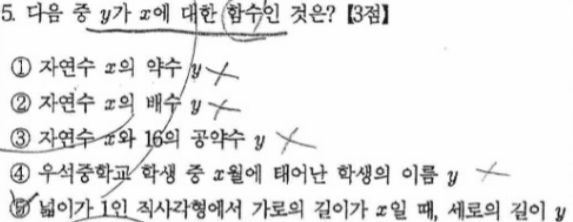 5. 다음 중 y가 x에 대한 함수인 것은? 【3점】
① 자연수 x의 약수 y
② 자연수 x의 배수 y
③ 자연수 x와 16의 공약수 y
④ 우석중학교 학생 중 x월에 태어난 학생의 이름 y
⑤ 넓이가 1인 직사각형에서 가로의 길이가 x일 때, 세로의 길이 y